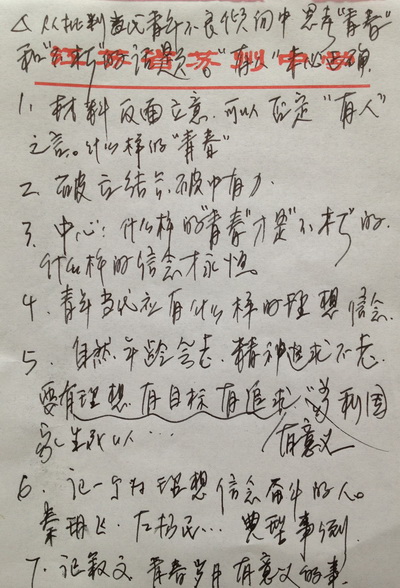 △ 从批判当代青年不良倾向中思考“青春”
和“不朽”的话题。“有人” 中心明确
江苏省苏州中学
1. 材料反面立意,可以否定“有人”
之言。什么样的“青春”
2. 破立结合,破中有力.
3. 中心:什么样的“青春”才是“不朽”的.
什么样的信念才永恒。
4. 青年当代应有什么样的理想信念.
5. 自然年龄会老,精神追求不老.
要有理想有目标有追求.
有意义
6. 记一个为理想信念奋斗的人。
典型事例
7. 记叙文 青春岁月有意义的事